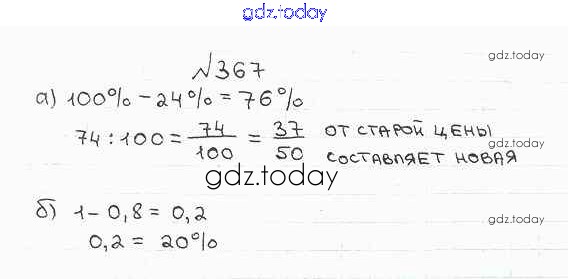 gdz.today
№367
gdz.today
а) 100% - 24% = 76%
74 : 100 = 74/100 = 37/50 ОТ СТАРОЙ ЦЕНЫ
СОСТАВЛЯЕТ НОВАЯ
gdz.today
б) 1 - 0,8 = 0,2
gdz.today
0,2 = 20%